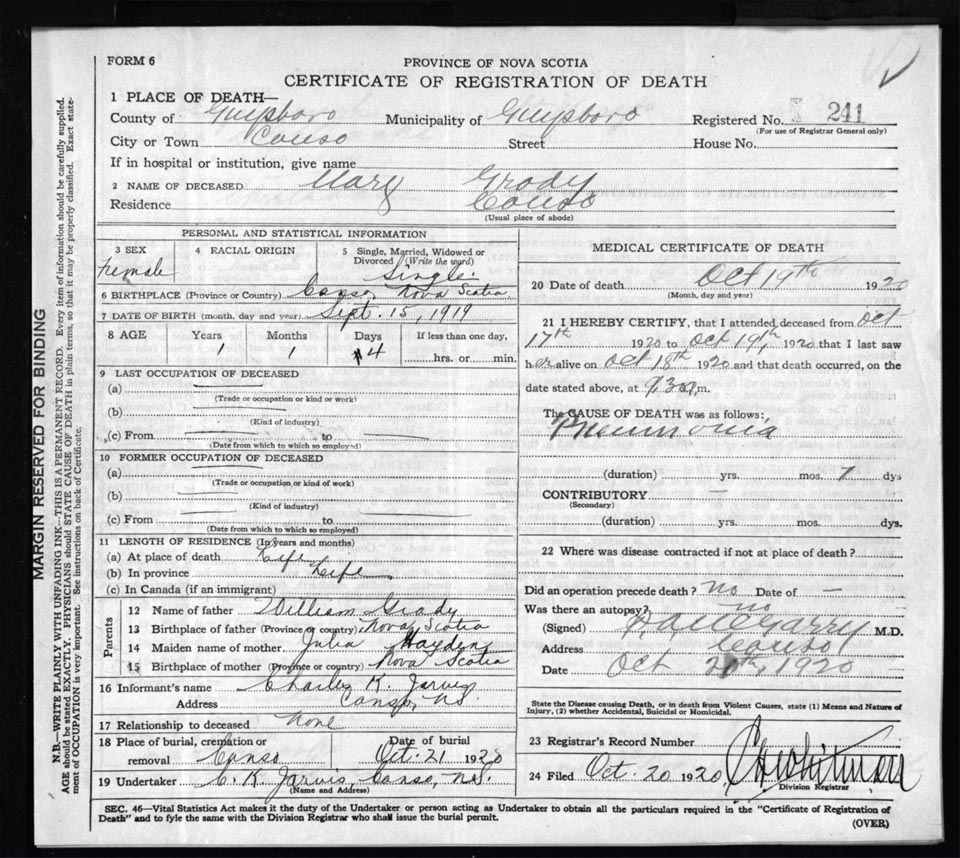 FORM 6
PROVINCE OF NOVA SCOTIA
CERTIFICATE OF REGISTRATION OF DEATH
1 PLACE OF DEATH—
County of Guysboro Municipality of Guysboro Registered No. 241
(For use of Registrar General only)
City or Town Canso Street House No.
If in hospital or institution, give name
2 NAME OF DECEASED Mary Grady
Residence Canso
(Usual place of abode)
PERSONAL AND STATISTICAL INFORMATION
3 SEX
Female
4 RACIAL ORIGIN
5 Single, Married, Widowed or
Divorced (Write the word)
Single
6 BIRTHPLACE (Province or Country) Canso, Nova Scotia
7 DATE OF BIRTH (month, day and year) Sept. 15, 1919
8 AGE Years Months Days If less than one day,
1 1 4 hrs. or min.
9 LAST OCCUPATION OF DECEASED
(a)
(Trade or occupation or kind or work)
(b)
(Kind of industry)
(c) From to
(Date from which to which so employed)
10 FORMER OCCUPATION OF DECEASED
(a)
(Trade or occupation or kind of work)
(b)
(Kind of industry)
(c) From to
(Date from which to which so employed)
11 LENGTH OF RESIDENCE (In years and months)
(a) At place of death Life
(b) In province Life
(c) In Canada (if an immigrant)
Parents
12 Name of father William Grady
13 Birthplace of father (Province or country) Nova Scotia
14 Maiden name of mother Julia Hayden
15 Birthplace of mother (Province or country) Nova Scotia
16 Informant's name Charles K. Jarvis
Address Canso, NS
17 Relationship to deceased None
18 Place of burial, cremation or Date of burial
removal Canso Oct. 21 1920
19 Undertaker C. K. Jarvis, Canso, N.S.
(Name and Address)
MEDICAL CERTIFICATE OF DEATH
20 Date of death Oct 19th 1920
(Month, day and year)
21 I HEREBY CERTIFY, that I attended deceased from Oct
17th 1920 to Oct 19th, 1920 that I last saw
her alive on Oct 18th 1920 and that death occurred, on the
date stated above, at 9.30 m.
The CAUSE OF DEATH was as follows:
Pneumonia
(duration) yrs. mos. 7 dys
CONTRIBUTORY —
(Secondary)
(duration) yrs. mos. dys.
22 Where was disease contracted if not at place of death?
Did an operation precede death? No Date of —
Was there an autopsy? no
(Signed) M.D.
Address Canso
Date Oct 1920
State the Disease causing Death, or in death from Violent Causes, state (1) Means and Nature of
Injury, (2) whether Accidental, Suicidal or Homicidal.
23 Registrar's Record Number
24 Filed Oct. 20 1920 Whitman
Division Registrar
SEC. 46—Vital Statistics Act makes it the duty of the Undertaker or person acting as Undertaker to obtain all the particulars required in the "Certificate of Registration of
Death" and to fyle the same with the Division Registrar who shall issue the burial permit.
(OVER)
MARGIN RESERVED FOR BINDING
N.B.—WRITE PLAINLY WITH UNFADING INK—THIS IS A PERMANENT RECORD. Every item of information should be carefully supplied.
AGE should be stated EXACTLY. PHYSICIANS should STATE CAUSE OF DEATH in plain terms, so that it may be properly classified. Exact state-
ment of OCCUPATION is very important. See instructions on back of Certificate.